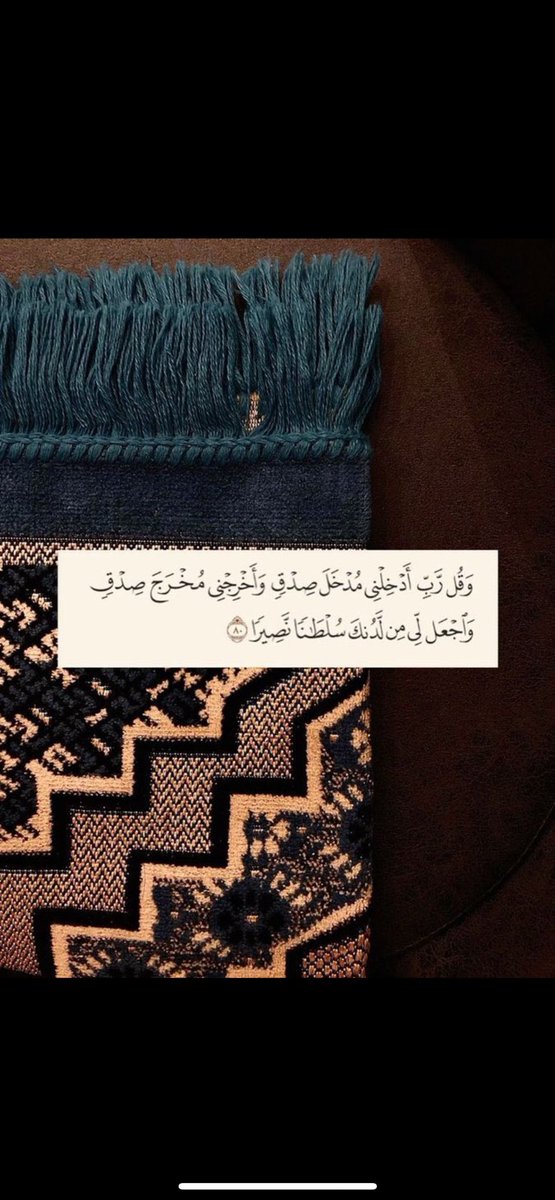 وَقُل رَّبِّ أَدْخِلْنِى مُدْخَلَ صِدْقٍ وَأَخْرِجْنِى مُخْرَجَ صِدْقٍ
وَٱجْعَل لِّى مِن لَّدُنكَ سُلْطَـٰنًا نَّصِيرًا ٨٠